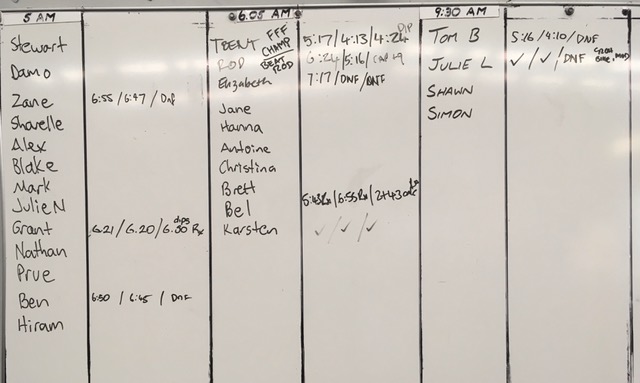 5 AM
Stewart
Damo
Zane 6:55 / 6:47 / DNF
Sharelle
Alex
Blake
Mark
Julie N
Grant 6.21 / 6.20 / 6.30 dips Rx
Nathan
Prue
Ben 6:30 / 6:45 / DNF
Hiram
6.05 AM
TRENT FFF CHAMP 5:17 / 4:13 / 4:24 DIP
ROD BEAT ROD 6:24 / 5:16 /
Elizabeth 7:17 / DNF / DNF
Jane
Hanna
Antoine
Christina
Brett
Bel 5:43Rx / 6:55Rx /
Karsten ✓ / ✓ / ✓
9:30 AM
TOM B 5:16 / 4:10 / DNF
JULIE L ✓ / ✓ / DNF
SHAWN
SIMON